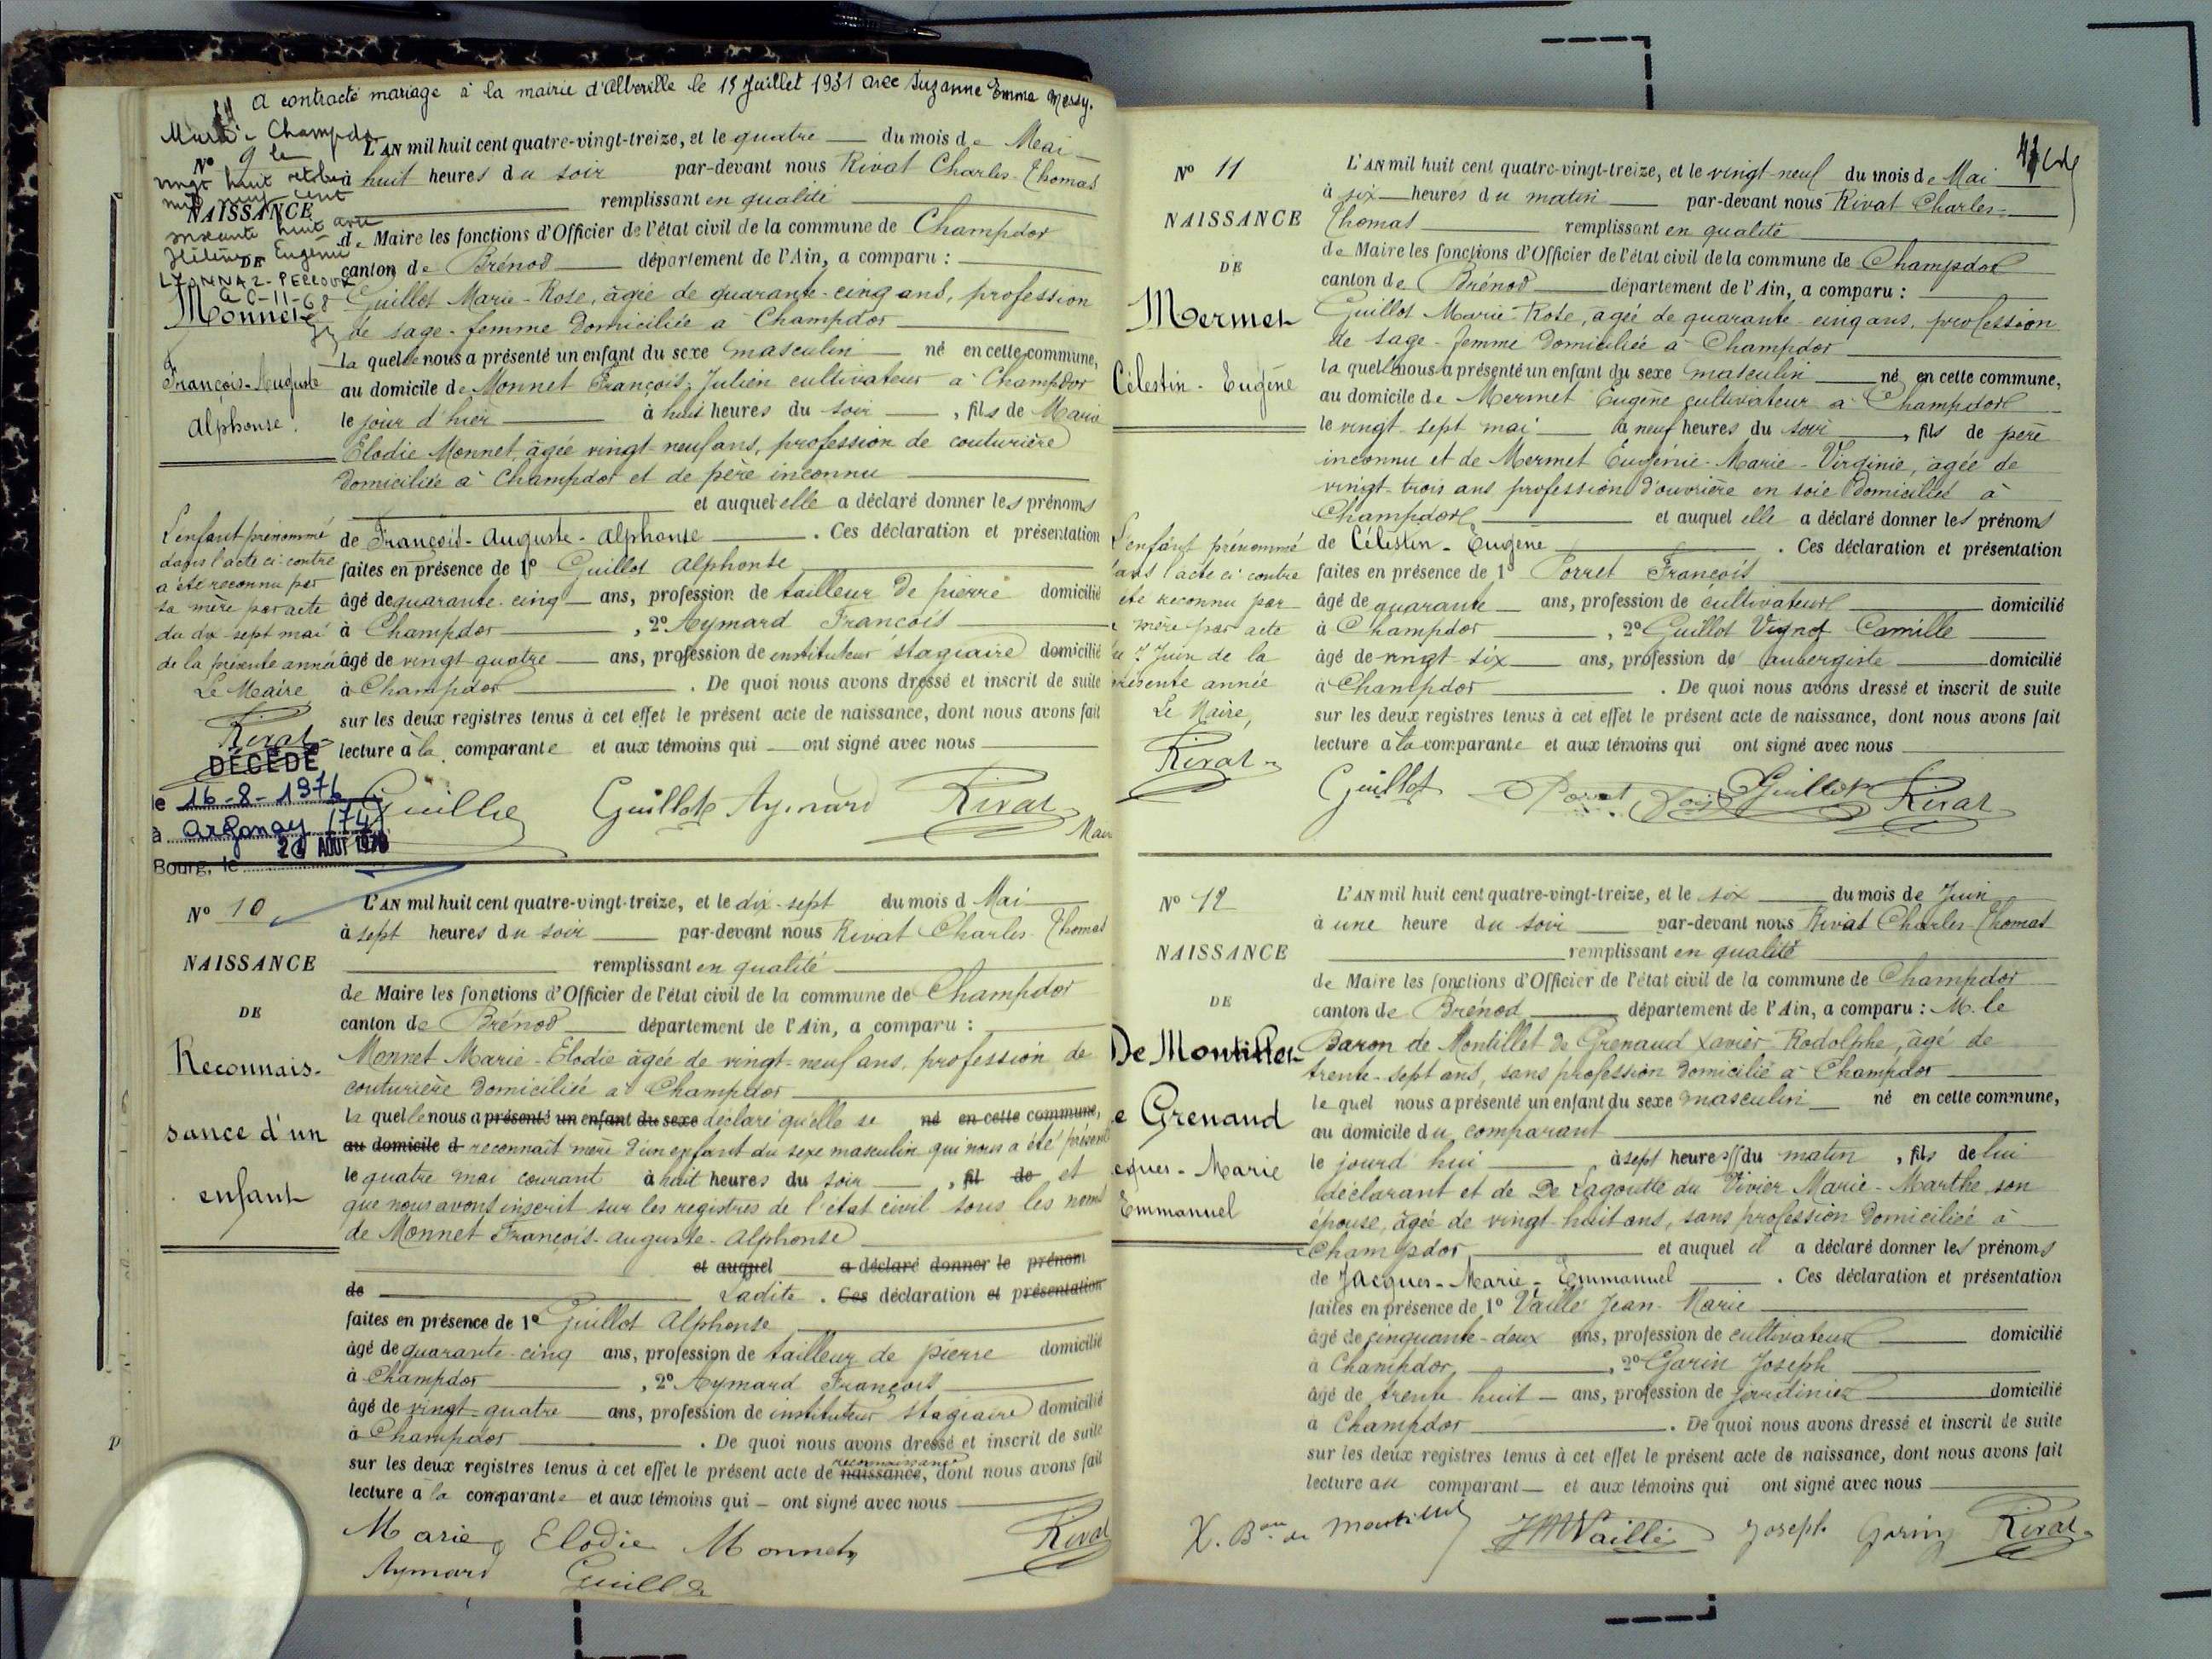 A contracté mariage à la mairie d'Albertville le 15 Juillet 1931 avec Suzanne Emma
Marié à Champdor
N° 9 le
vingt huit octobre
mil neuf cent
NAISSANCE
soixante huit avec
Hélène Eugénie
DE
Monnet
François-Auguste
Alphonse.
L'AN mil huit cent quatre-vingt-treize, et le quatre du mois de Mai
à huit heures du soir par-devant nous Rivat Charles-Thomas
remplissant en qualité
de Maire les fonctions d'Officier de l'état civil de la commune de Champdor
canton de Brénod département de l'Ain, a comparu :
Guillot Marie-Rose, âgée de quarante-cinq ans, profession
de sage-femme domiciliée à Champdor
la quelle nous a présenté un enfant du sexe masculin né en cette commune,
au domicile de Monnet François Julien cultivateur à Champdor
le jour d'hier à huit heures du soir, fils de Marie
Elodie Monnet, âgée vingt-neuf ans, profession de couturière
domiciliée à Champdor et de père inconnu
et auquel elle a déclaré donner les prénoms
de François-Auguste-Alphonse. Ces déclaration et présentation
faites en présence de 1° Guillot Alphonse
âgé de quarante-cinq ans, profession de tailleur de pierre domicilié
à Champdor, 2° Aymard François
âgé de vingt-quatre ans, profession de instituteur stagiaire domicilié
à Champdor. De quoi nous avons dressé et inscrit de suite
sur les deux registres tenus à cet effet le présent acte de naissance, dont nous avons fait
lecture à la comparante et aux témoins qui ont signé avec nous
L'enfant prénommé
dans l'acte ci-contre
a été reconnu par
sa mère par acte
du dix-sept mai
de la présente année
Le Maire
Rivat
DÉCÉDÉ
le 16-8-1976
à Argonay (74)
Bourg, le 20 AOUT 1976
Guillot Aymard Rivat
N° 10
NAISSANCE
DE
Reconnais-
sance d'un
enfant
L'AN mil huit cent quatre-vingt-treize, et le dix-sept du mois d Mai
à sept heures du soir par-devant nous Rivat Charles-Thomas
remplissant en qualité
de Maire les fonctions d'Officier de l'état civil de la commune de Champdor
canton de Brénod département de l'Ain, a comparu :
Monnet Marie-Elodie âgée de vingt-neuf ans, profession de
couturière domiciliée à Champdor
la quelle nous a présenté un enfant du sexe déclaré qu'elle se né en cette commune,
au domicile d reconnaît mère d'un enfant du sexe masculin qui nous a été présenté
le quatre mai courant à huit heures du soir, fil de et
que nous avons inscrit sur les registres de l'état civil sous les noms
de Monnet François-Auguste-Alphonse
et auquel a déclaré donner le prénom
de Ladite. Ces déclaration et présentation
faites en présence de 1° Guillot Alphonse
âgé de quarante-cinq ans, profession de tailleur de pierre domicilié
à Champdor, 2° Aymard François
âgé de vingt-quatre ans, profession de instituteur stagiaire domicilié
à Champdor. De quoi nous avons dressé et inscrit de suite
reconnaissance
sur les deux registres tenus à cet effet le présent acte de naissance, dont nous avons fait
lecture à la comparante et aux témoins qui ont signé avec nous
Marie Elodie Monnet Rivat
Aymard Guillot
N° 11
NAISSANCE
DE
Mermet
Célestin-Eugène
L'AN mil huit cent quatre-vingt-treize, et le vingt-neuf du mois de Mai
à six heures du matin par-devant nous Rivat Charles-
Thomas remplissant en qualité
de Maire les fonctions d'Officier de l'état civil de la commune de Champdor
canton de Brénod département de l'Ain, a comparu :
Guillot Marie-Rose, agée de quarante-cinq ans, profession
de sage-femme domiciliée à Champdor
la quelle nous a présenté un enfant du sexe masculin né en cette commune,
au domicile de Mermet Eugène cultivateur à Champdor
le vingt-sept mai à neuf heures du soir, fils de père
inconnu et de Mermet Eugénie-Marie-Virginie, âgée de
vingt-trois ans profession d'ouvrière en soie domiciliée à
Champdor et auquel elle a déclaré donner les prénoms
de Célestin-Eugène. Ces déclaration et présentation
faites en présence de 1° Porret François
âgé de quarante ans, profession de cultivateur domicilié
à Champdor, 2° Guillot Camille
âgé de vingt-six ans, profession de aubergiste domicilié
à Champdor. De quoi nous avons dressé et inscrit de suite
sur les deux registres tenus à cet effet le présent acte de naissance, dont nous avons fait
lecture à la comparante et aux témoins qui ont signé avec nous
L'enfant prénommé
dans l'acte ci-contre
été reconnu par
mère par acte
7 Juin de la
présente année
Le Maire,
Rivat
Guillot Porret Guillot Rivat
N° 12
NAISSANCE
DE
De Montillet
e Grenaud
cques-Marie
Emmanuel
L'AN mil huit cent quatre-vingt-treize, et le six du mois de Juin
à une heure du soir par-devant nous Rivat Charles-Thomas
remplissant en qualité
de Maire les fonctions d'Officier de l'état civil de la commune de Champdor
canton de Brénod département de l'Ain, a comparu : M. le
Baron de Montillet de Grenaud Xavier-Rodolphe, âgé de
trente-sept ans, sans profession domicilié à Champdor
le quel nous a présenté un enfant du sexe masculin né en cette commune,
au domicile du comparant
le jourd'hui à sept heures du matin, fils de lui
déclarant et de De Lagoutte du Vivier Marie-Marthe, son
épouse, âgée de vingt-huit ans, sans profession domiciliée à
Champdor et auquel il a déclaré donner les prénoms
de Jacques-Marie-Emmanuel. Ces déclaration et présentation
faites en présence de 1° Vaillé Jean-Marie
âgé de cinquante-deux ans, profession de cultivateur domicilié
à Champdor, 2° Garin Joseph
âgé de trente huit ans, profession de jardinier domicilié
à Champdor. De quoi nous avons dressé et inscrit de suite
sur les deux registres tenus à cet effet le présent acte de naissance, dont nous avons fait
lecture au comparant et aux témoins qui ont signé avec nous
X. Bon de Montillet JM Vaillé Joseph Garin Rivat